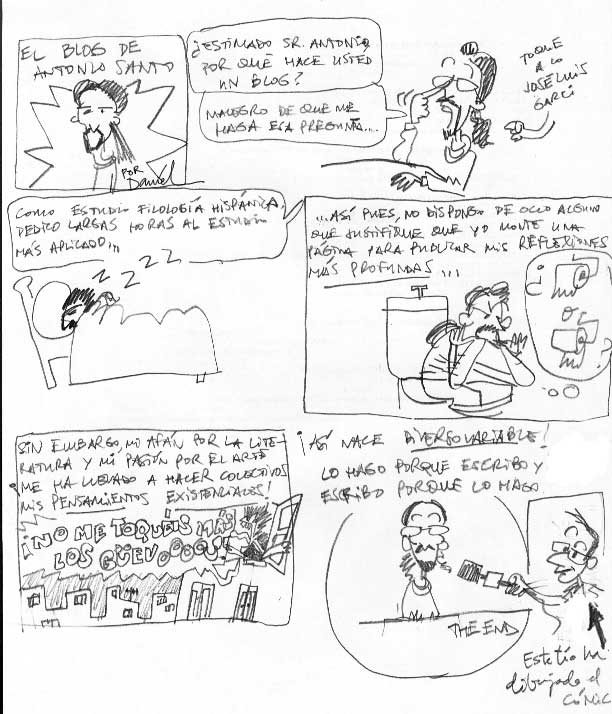 EL BLOG DE
ANTONIO SANTO
POR
Daniel
¿ESTIMADO SR. ANTONIO,
POR QUÉ HACE USTED
UN BLOG?
MALEGRO DE QUE ME
HAGA ESA PREGUNTA...
TOQUE
A LO
JOSE LUIS
GARCI
COMO ESTUDIO FILOLOGÍA HISPÁNICA,
DEDICO LARGAS HORAS AL ESTUDIO
MÁS APLICADO...
Z Z Z Z
...ASÍ PUES, NO DISPONGO DE OCIO ALGUNO
QUE JUSTIFIQUE QUE YO MONTE UNA
PÁGINA PARA PUBLICAR MIS REFLEXIONES
MÁS PROFUNDAS...
¿
O
?
SIN EMBARGO, MI AFÁN POR LA LITE-
RATURA Y MI PASIÓN POR EL ARTE
ME HA LLEVADO A HACER COLECTIVOS
MIS PENSAMIENTOS EXISTENCIALES!
¡NO ME TOQUÉIS MÁS
LOS GÜEVOOOOS!
¡ASÍ NACE DIVERSOVARIABLE!
LO HAGO PORQUE ESCRIBO Y
ESCRIBO PORQUE LO HAGO
THE END
Este tío ha
dibujado el
CÓMIC